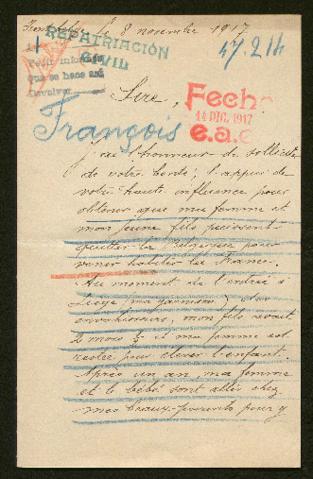 le 8 novembre 1917
REPATRIACIÓN
CIVIL
47.214
Pedir informes
que se hace así
devolver
Sire,
Fecha
14 DIC. 1917
e.a.c
François
J'ai l'honneur de solliciter
de votre bonté, l'appui de
votre haute influence pour
obtenir que ma femme et
mon jeune fils puissent
quitter la Belgique pour
venir habiter la France.
Au moment de l'entrée à
Liège (ma garnison) des
envahisseurs, mon fils avait
2 mois ½ et ma femme est
restée pour élever l'enfant.
Après un an, ma femme
et le bébé sont allés chez
mes beaux-parents pour y